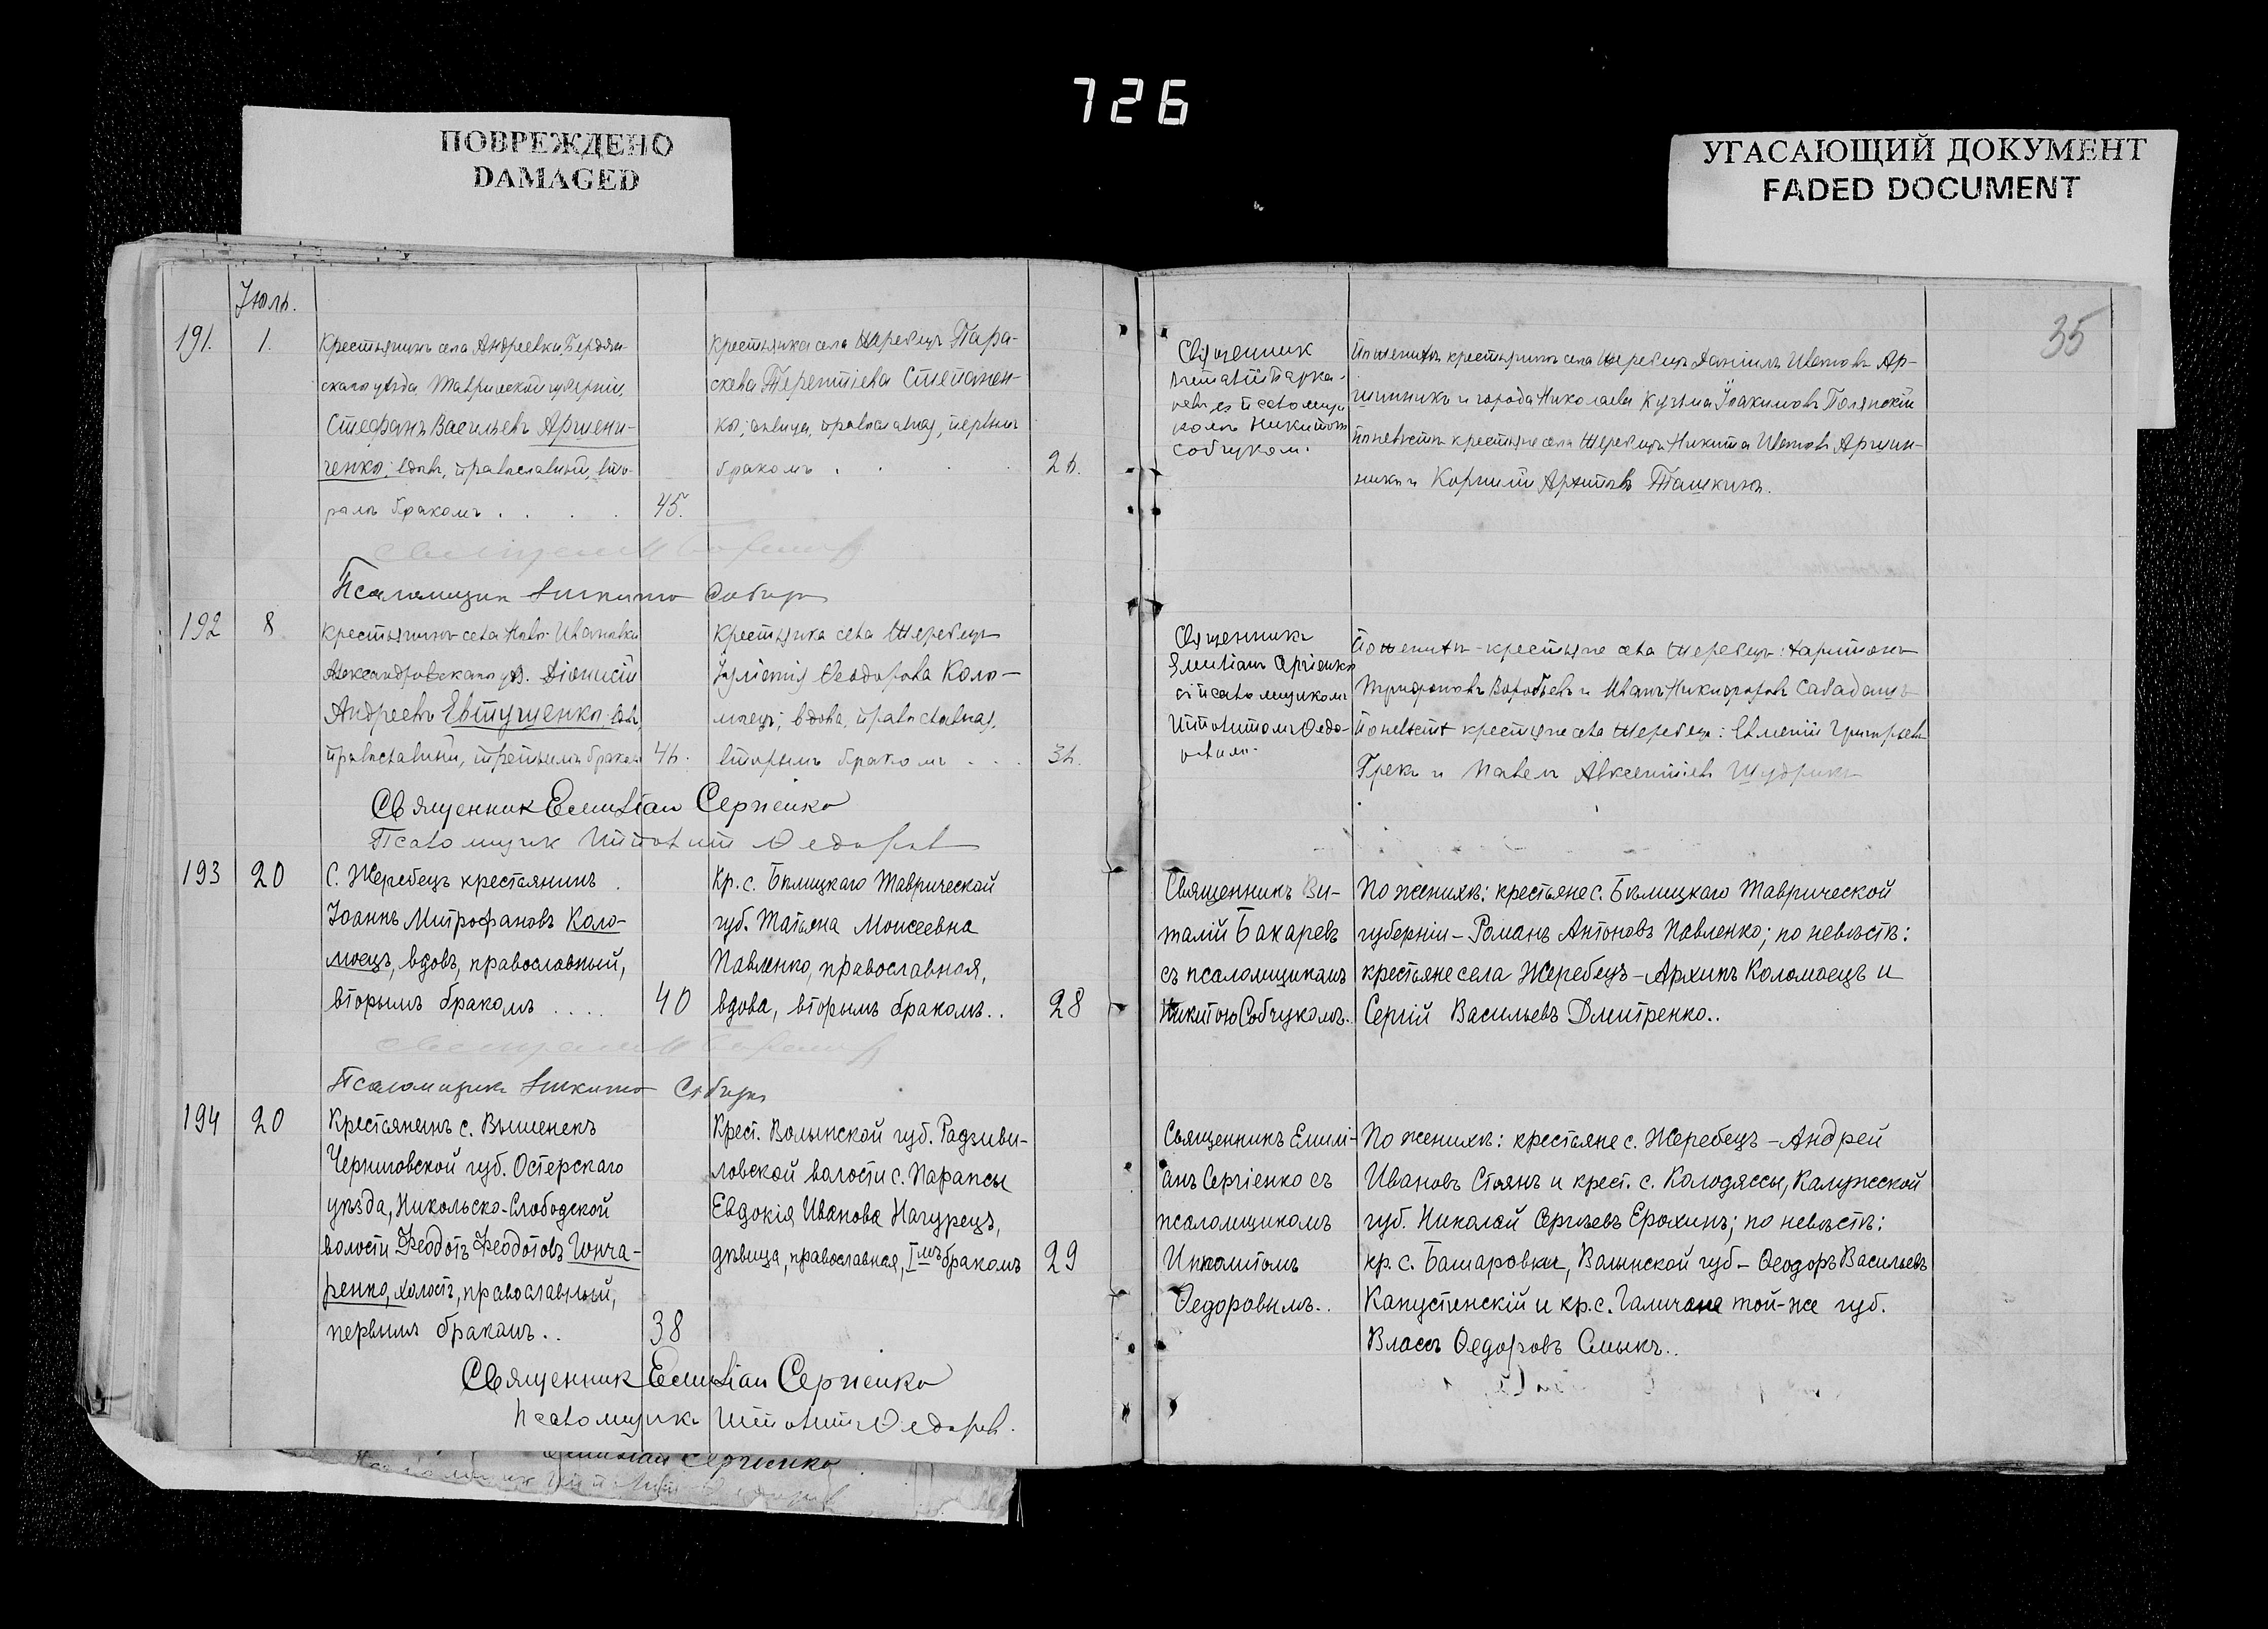 726
ПОВРЕЖДЕНО
DAMAGED
УГАСАЮЩИЙ ДОКУМЕНТ
FADED DOCUMENT
35
Іюль.
191. 1.
Крестьянинъ села Андреевки, Бердян-
скаго уѣзда, Таврической губерніи,
Стефанъ Васильевъ Аршени-
ченко; вдовъ, православный, вто-
рымъ бракомъ . . . . 45.
Крестьянка села Жеребецъ Пара-
скева Терентіева Степанен-
ко; дѣвица, православная, первымъ
бракомъ . . . . 26.
Священникъ
Виталій Бахаревъ
съ псаломщи-
комъ Никитою
Собчуком.
По женихѣ крестьянинъ села Жеребецъ Даніилъ Ивановъ Ар-
шинникъ и города Николаева Кузьма Іоакимовъ Полянскій
По невѣстѣ крестьяне села Жеребецъ Никита Ивановъ Аршин-
никъ и Корнилій Ташкинъ.
Псаломщик Никита Собчук
192 8
Крестьянинъ села Ново-Ивановки
Александровскаго уѣ. Діонисій
Андреевъ Евтушенко, вдв,
православный, третьимъ бракомъ 46.
Крестьянка села Жеребецъ
Іуліанія Ѳеодорова Коло-
моецъ; вдова, православная,
вторымъ бракомъ . . . 36.
Священникъ
Емиліанъ Сергіенко
съ псаломщикомъ
Ипполитомъ Ѳедо-
ровым.
По женихѣ - крестьяне села Жеребецъ: Харитонъ
Трифоновъ Воробьевъ и Иванъ Никифоровъ Сабадашъ
По невѣстѣ крестьяне села Жеребецъ: Евменій Григорьевъ
Грекъ и Павелъ Авксентіевъ Щудрикъ
Священник Емиліан Сергіенко
Псаломщик Ипполит Ѳедоров
193 20
С. Жеребецъ крестьянинъ
Іоаннъ Митрофановъ Коло-
моецъ, вдовъ, православный,
вторымъ бракомъ .... 40
Кр. с. Бѣлицкаго Таврической
губ. Татьяна Моисеевна
Павленко, православная,
вдова, вторымъ бракомъ.. 28
Священникъ Ви-
талій Бахаревъ
съ псаломщикомъ
Никитою Собчукомъ.
По женихѣ: крестьяне с. Бѣлицкаго Таврической
губерніи - Романъ Антоновъ Павленко; по невѣстѣ:
крестьяне села Жеребецъ - Архипъ Коломоецъ и
Сергій Васильевъ Дмитренко..
Псаломщикъ Никита Собчук
194 20
Крестьянинъ с. Вышенекъ
Черниговской губ. Остерскаго
уѣзда, Никольско-Слободской
волости Феодотъ Феодотовъ Гонча-
ренко, холостъ, православный,
первымъ бракомъ.. 38
Крест. Волынской губ. Радзиви-
ловской волости с. Парапсы
Евдокія Иванова Нагурецъ,
дѣвица, православная, Iмъ бракомъ 29
Священникъ Емилі-
анъ Сергіенко съ
псаломщикомъ
Ипполитомъ
Ѳедоровымъ..
По женихѣ: крестьяне с. Жеребецъ - Андрей
Ивановъ Стоянъ и крест. с. Колодяссы, Калужсской
губ. Николай Сергѣевъ Ерохинъ; по невѣстѣ:
кр. с. Башаровки, Волынской губ - Ѳеодоръ Васильевъ
Капустинскій и кр. с. Галичане той-же губ.
Власъ Ѳедоровъ Смыкъ..
Священник Емиліан Сергіенко
Псаломщикъ Ипполитъ Ѳедоров.
Емиліан Сергіенко